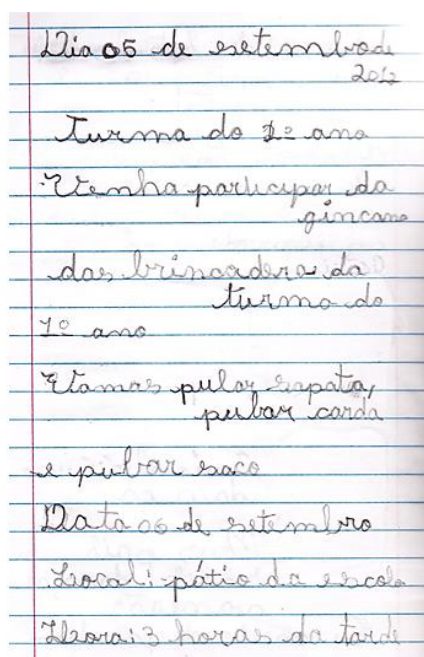 Dia 05 de setembro de
2012
Turma do 1º ano
Venha participar da
gincana
das brincadera da
turma do
1º ano
Vamos pular sapata,
pular corda
e pular saco
Data 06 de setembro
Local: pátio da escola
Hora: 3 horas da tarde